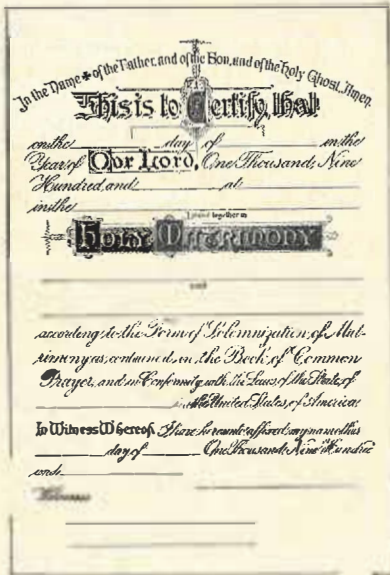 In the Name of the Father, and of the Son, and of the Holy Ghost. Amen.
This is to Certify, that
on the day of in the
Year of Our Lord, One Thousand Nine
Hundred and at
in the
I joined together in
Holy Matrimony
and
according to the Form of Solemnization of Mat-
rimony as contained in the Book of Common
Prayer, and in Conformity with the Laws of the State of
in the United States of America
In Witness Whereof, I have hereunto affixed my name this
day of One Thousand Nine Hundred
and
Witnesses